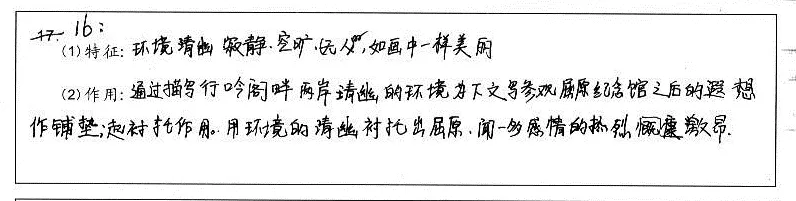 17. 16:
(1)特征:环境清幽 寂静·空旷·无人,如画中一样美丽
(2)作用:通过描写行吟阁畔两岸清幽的环境为下文写参观屈原纪念馆之后的遐想
作铺垫;起衬托作用。用环境的清幽衬托出屈原、闻一多感情的热烈慷慨激昂.